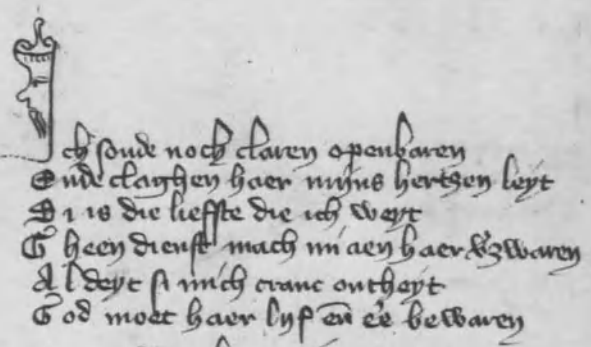 Ich soude noch claren openbaren
Ende claghen haer mijns hertzen leyt
Si is die liefste die ich weyt
Gheen dienst mach mi aen haer v'zwaren
Al deyt si mich cranc ontheyt
God moet haer lijf eñ e'e bewaren